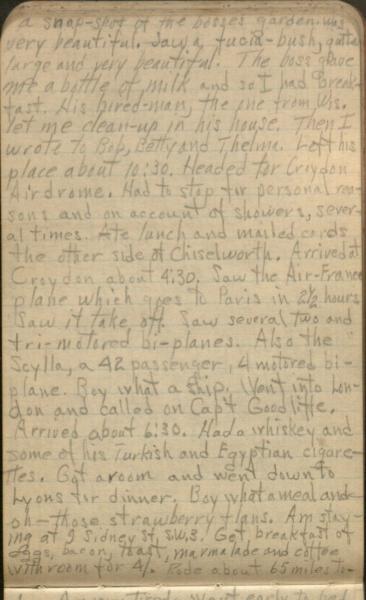 a snap-shot of the bosses garden. was
very beautiful. Saw a fucia-bush, quite
large and very beautiful. The boss gave
me a bottle of milk and so I had break-
fast. His hired-man, the one from Wis.
let me clean-up in his house. Then I
wrote to Bob, Betty and Thelma. Left his
place about 10:30. Headed for Croydon
Airdrome. Had to stop for personal rea-
sons and on account of showers, sever-
al times. Ate lunch and mailed cards
the other side of Chiselworth. Arrived at
Croydon about 4:30. Saw the Air-France
plane which goes to Paris in 2½ hours
Saw it take off. Saw several two and
tri-motored bi-planes. Also the
Scylla, a 42 passenger, 4 motored bi-
plane. Boy what a ship. Went into Lon-
don and called on Capt Goodliffe.
Arrived about 6:30. Had a whiskey and
some of his Turkish and Egyptian cigare-
ttes. Got a room and went down to
Lyons for dinner. Boy what a meal and
oh - those strawberry flans. Am stay-
ing at 9 Sidney St, S.W.3. Get breakfast of
eggs, bacon, toast, marmalade and coffee
with room for 4/. Rode about 65 miles to-